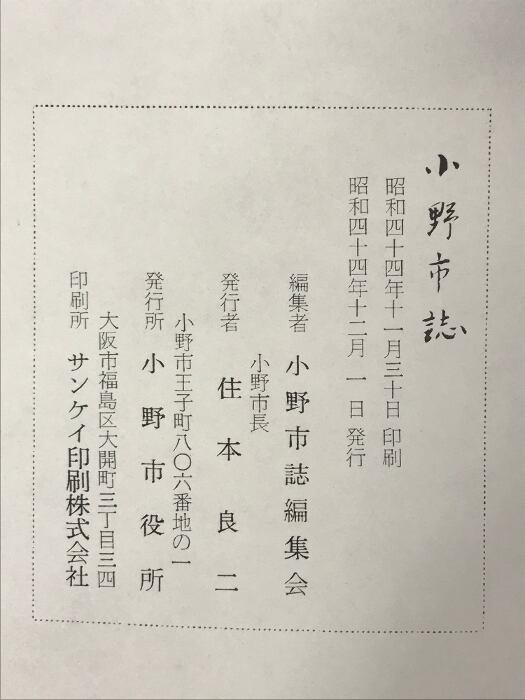 小野市誌
昭和四十四年十一月三十日 印刷
昭和四十四年十二月 一日 発行
編集者 小野市誌編集会
小野市長
発行者 住本良二
小野市王子町八〇六番地の一
発行所 小野市役所
大阪市福島区大開町三丁目三四
印刷所 サンケイ印刷株式会社